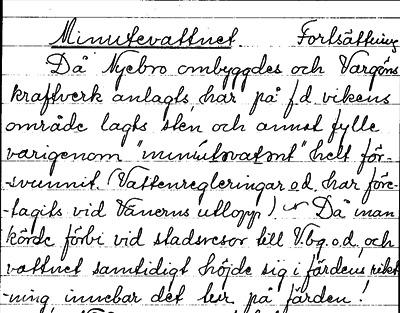 Minutevattnet. Fortsättning
Då Nyebro ombyggdes och Vargöns
kraftverk anlagts, har på f.d vikens
område lagts sten och annat fylle
varigenom "minutsvatnet" helt för-
-svunnit. (Vattenregleringar o.d. har före-
-tagits vid Vänerns utlopp.) Då man
körde förbi vid stadsresor till V.bg. o.d. och
vattnet samtidigt höjde sig i färdens rikt-
-ning innebar det tur på färden!